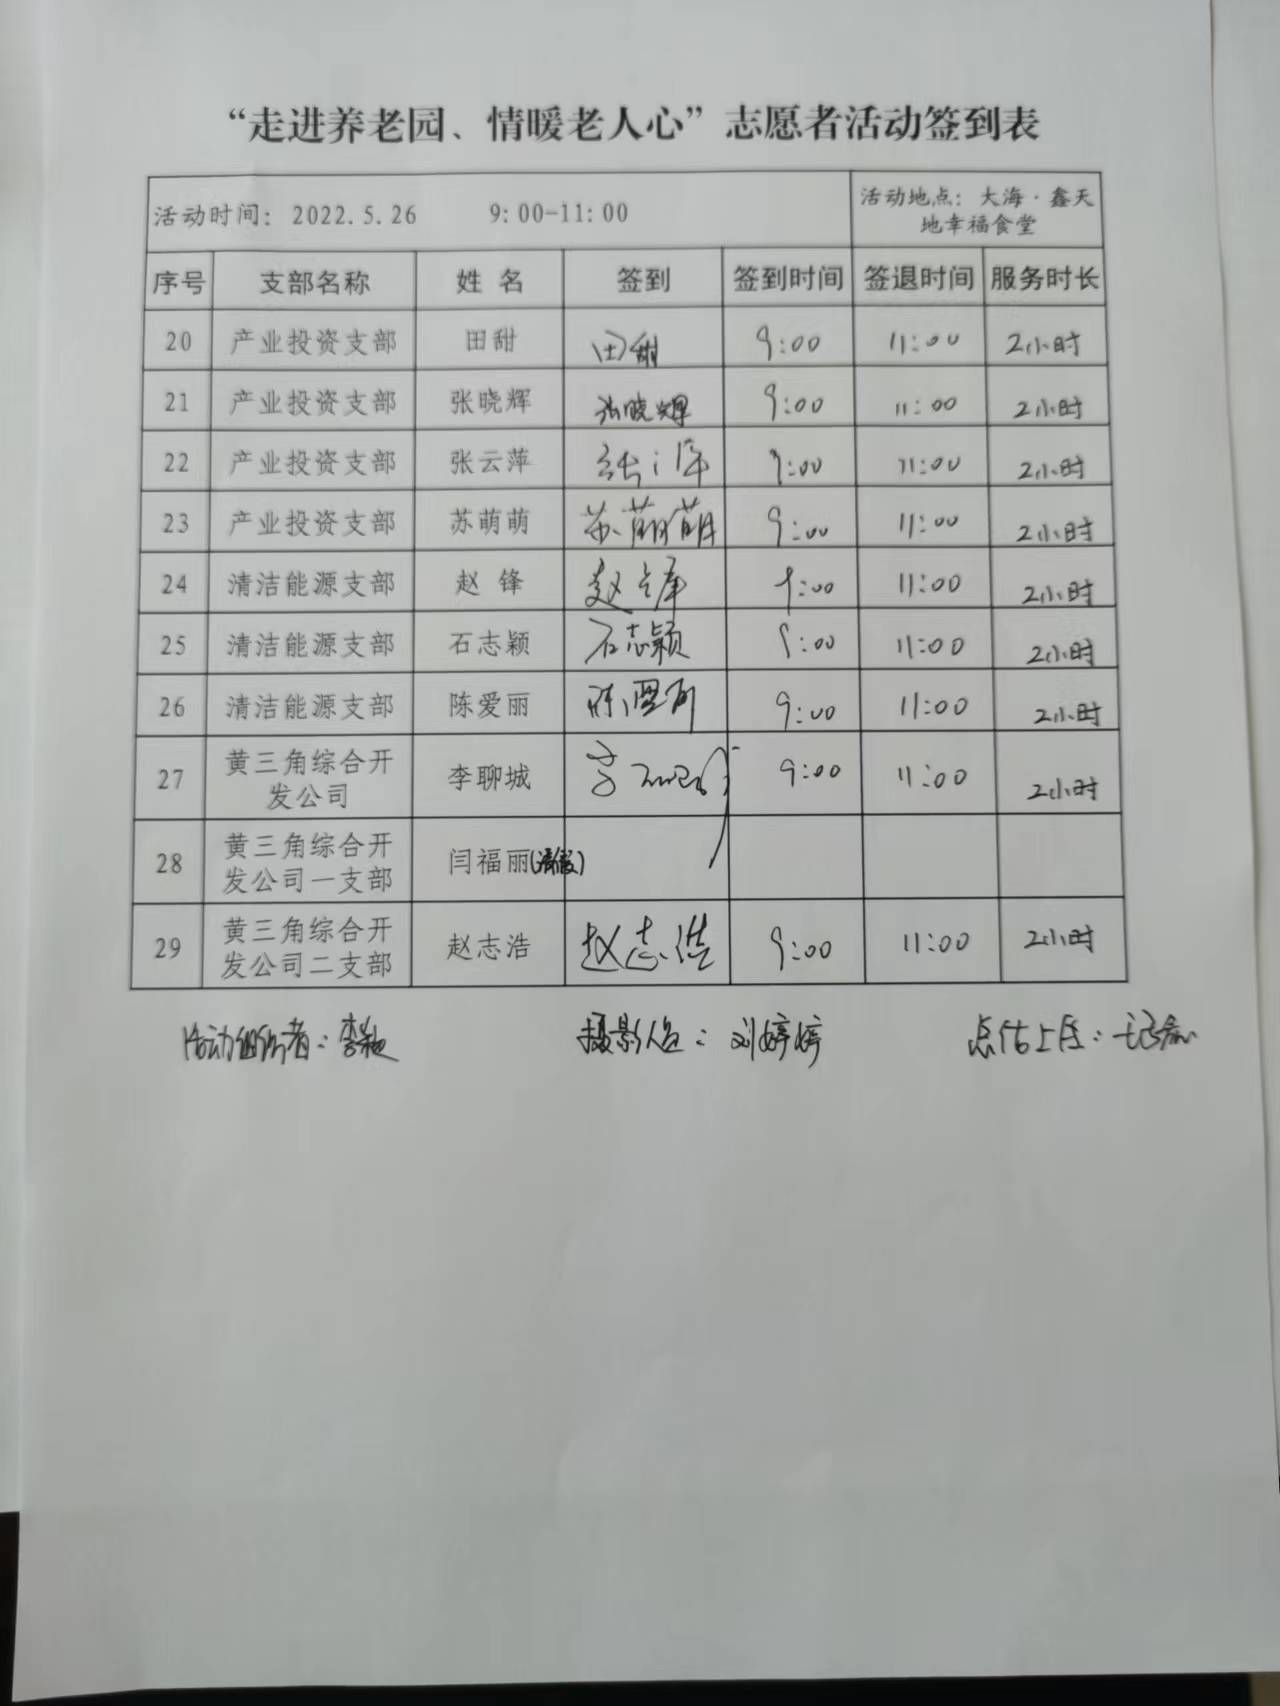 “走进养老园、情暖老人心”志愿者活动签到表
活动时间: 2022.5.26 9:00-11:00
活动地点: 大海·鑫天
地幸福食堂
序号 支部名称 姓 名 签到 签到时间 签退时间 服务时长
20 产业投资支部 田甜 田甜 9:00 11:00 2小时
21 产业投资支部 张晓辉 张晓辉 9:00 11:00 2小时
22 产业投资支部 张云萍 9:00 11:00 2小时
23 产业投资支部 苏萌萌 苏萌萌 9:00 11:00 2小时
24 清洁能源支部 赵 锋 赵锋 9:00 11:00 2小时
25 清洁能源支部 石志颖 石志颖 9:00 11:00 2小时
26 清洁能源支部 陈爱丽 9:00 11:00 2小时
黄三角综合开
27 发公司 李聊城 9:00 11:00 2小时
黄三角综合开
28 发公司一支部 闫福丽(请假)
黄三角综合开
29 发公司二支部 赵志浩 赵志浩 9:00 11:00 2小时
活动组织者: 摄影人员: 刘婷婷